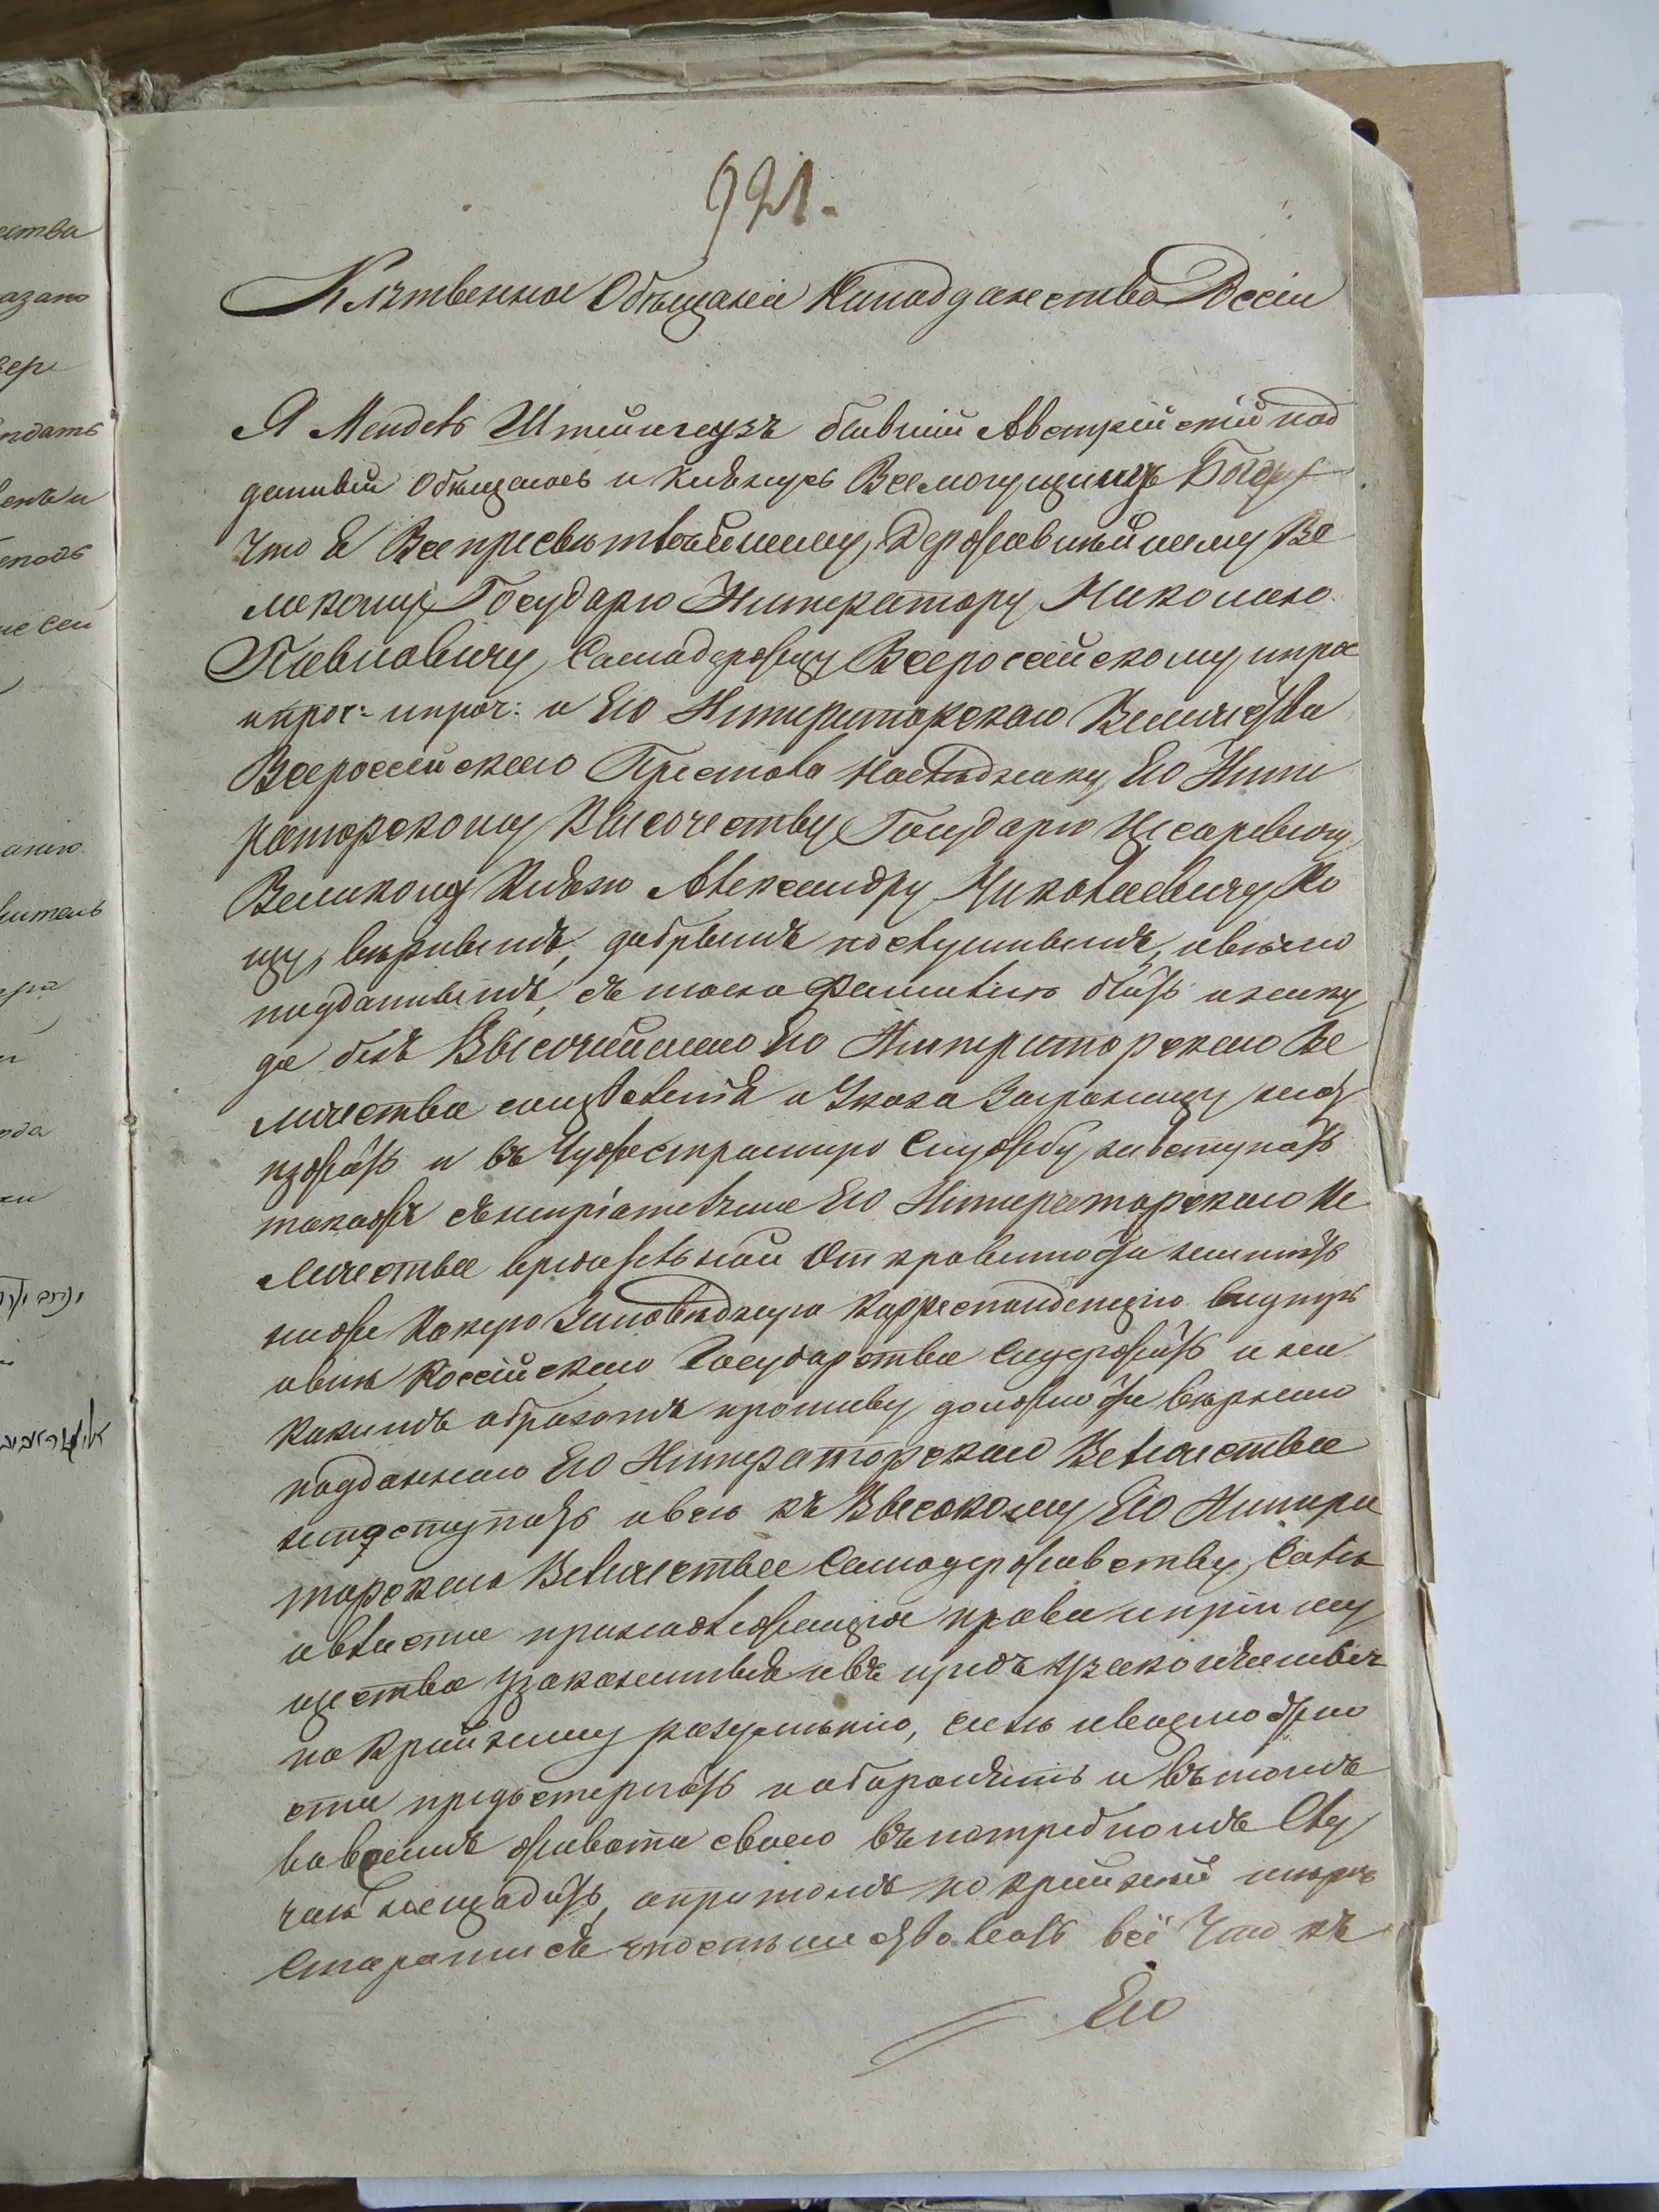 ества
азано
вер
ндать
енъ и
неводъ
не сеи
анию
витель
пра
ода
ки
921.
Клятвенное Обѣщаніе Наподданство Россіи
Я Мендель Штейнгаузъ бывшій Австрійскій под
данный Обѣщаюсь и клянусь Всемогущимъ Богомъ
что Е Всепресвѣтлѣйшему, Державнѣйшему Ве
ликому Государю Императору Николаю
Павловичу, Самадержцу Всероссійскому, ипро
ипроч: ипроч: и Его Императорскаго Величества
Всероссійскаго Престола Наслѣднику, Его Импе
раторскому Высочеству Государю Цесаревичу,
Великому Князю Александру Николаевичу Хо
щу, вѣрнымъ, добрымъ послушнымъ, ивѣчно
подданнымъ, съ моею Фамиліею быть и нику
да безъ Высочайшаго Его Императорскаго Ве
личества соизволенія и Указа Заграницу неот
ѣзжать и въ Чужестранную Службу невступать
такожъ снепріятельми Его Императорскаго Ве
личества вредительной Откровенности неимѣть
ниже Какую Заповѣдную Корреспонденцію внутрь
ивнѣ Россійскаго Государства Содержать и ни
какимъ образомъ противу должности вѣрнаго
подданнаго Его Императорскаго Величества
непоступать ивсѣ къ Высокому Его Импера
торскаго Величества Самодержавству, Силѣ
ивласти принадлежащія права ипреиму
щества узаконенныя ивъ предь узаконяемыя
по крайнему разумѣнію, силѣ ивозможно
сти предостерегать иоборонять и въ томъ
во всемъ живота своего въ потребномъ Слу
чаѣ нещадить, апритомъ по крайней мѣрѣ
Старатися споспѣшествовать всё Что къ
Его